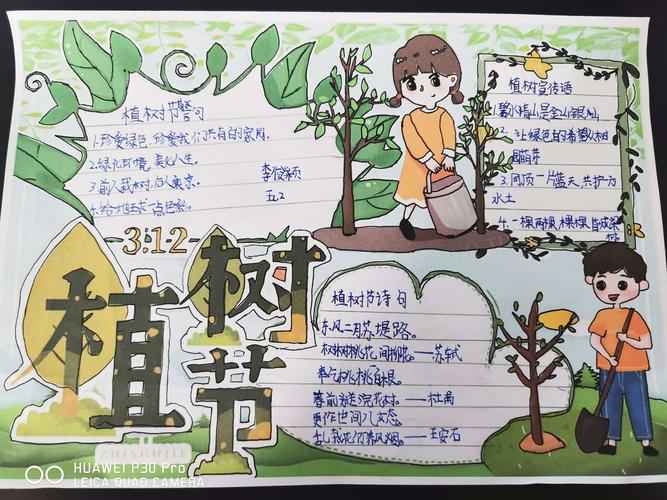 植树节警句
1.珍爱绿色,珍爱我们共有的家园。
2.绿化环境,美化人生。
3.前人栽树,后人乘凉。
4.给地球一点色彩。
李俊颖
五2
3.12
植树节
植树宣传语
2.让绿色的希望从树
中萌芽
3.同顶一片蓝天,共护一方
水土
4.一棵两棵,棵棵皆成茶
植树节诗句
东风二月苏堤路。
树树桃花间柳花。——苏轼
奉乞桃栽一百根。
春前为送浣花村。——杜甫
更作世间儿女态。
乱栽花竹养风烟。——王安石
HUAWEI P30 Pro
LEICA QUAD CAMERA